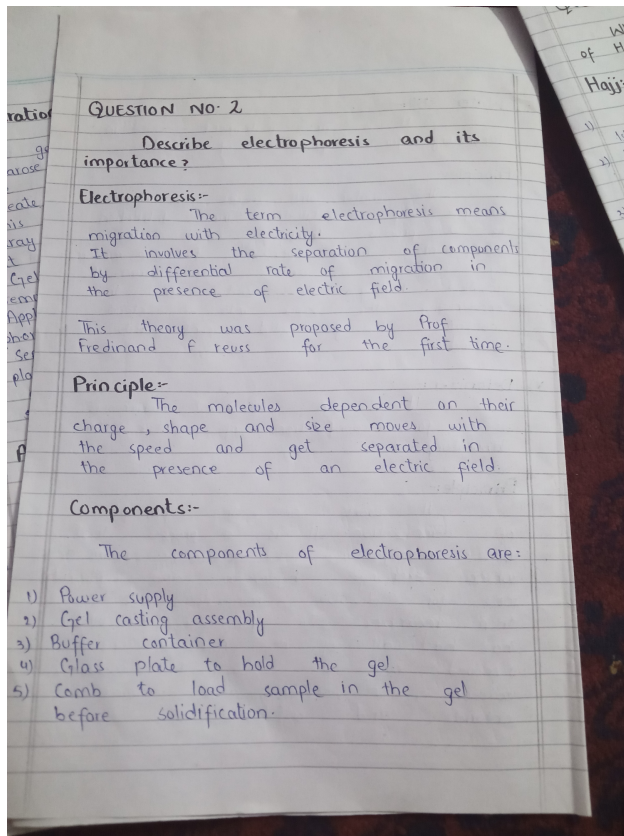 QUESTION NO. 2
Describe electrophoresis and its
importance?
Electrophoresis:-
The term electrophoresis means
migration with electricity.
It involves the separation of components
by differential rate of migration in
the presence of electric field.
This theory was proposed by Prof
Fredinand f reuss for the first time.
Principle:-
The molecules dependent on their
charge, shape and size moves with
the speed and get separated in
the presence of an electric field.
Components:-
The components of electrophoresis are:
1) Power supply
2) Gel casting assembly
3) Buffer container
4) Glass plate to hold the gel
5) Comb to load sample in the gel
before solidification.
ration
arose
eate
is
ray
Gel
App
plo
of H
Hajj:
1)
2)